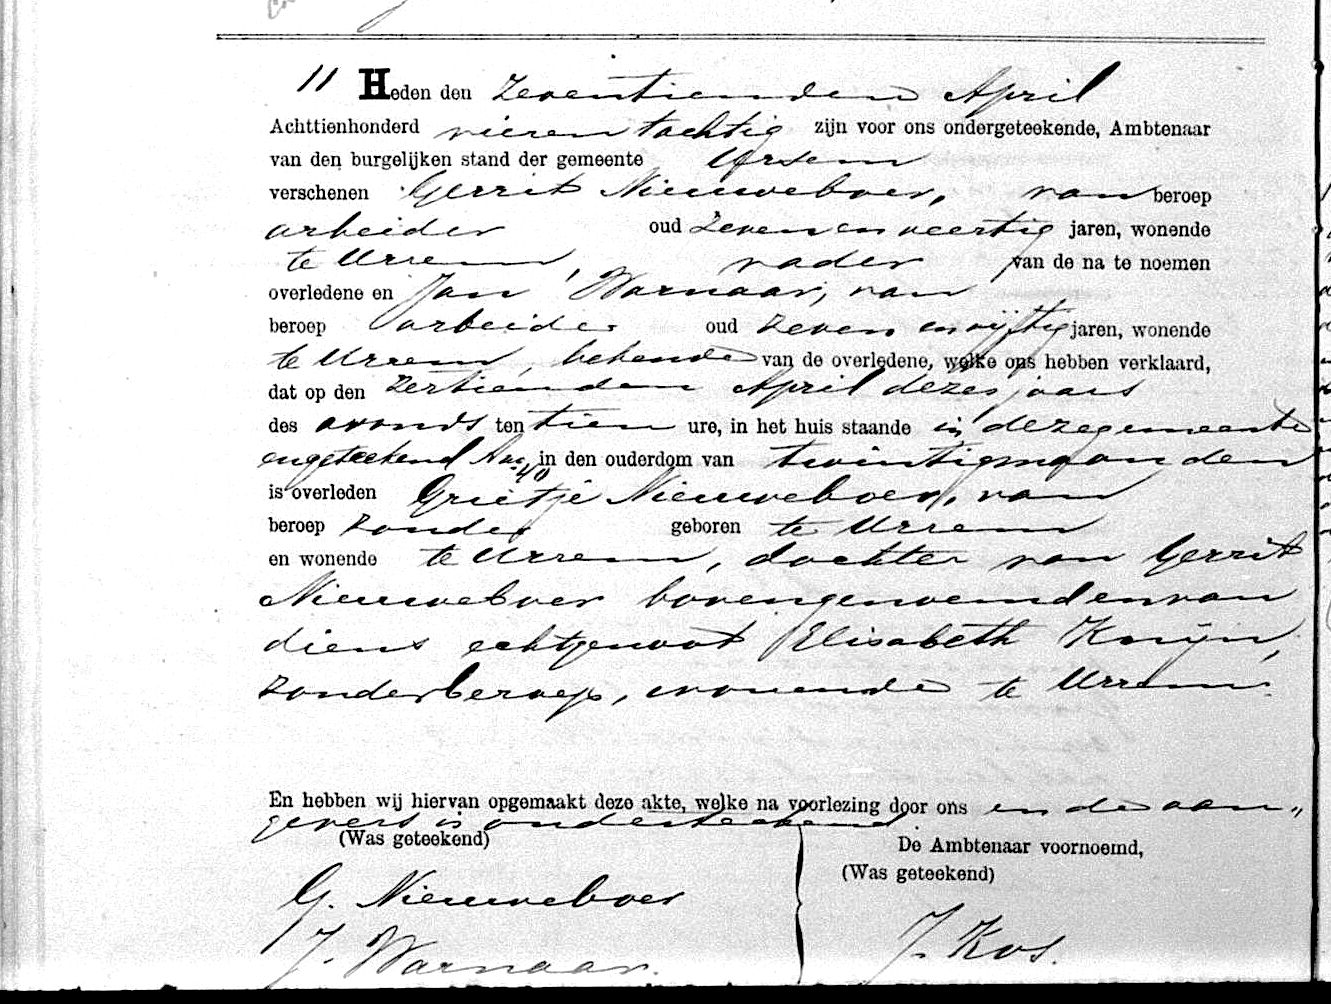 11 Heden den zeventienden April
Achttienhonderd vierentachtig zijn voor ons ondergeteekende, Ambtenaar
van den burgelijken stand der gemeente Ursem
verschenen Gerrit Nieuweboer, van beroep
arbeider oud zevenenveertig jaren, wonende
te Ursem, vader van de na te noemen
overledene en Jan Warnaar, van
beroep arbeider oud zeven en vijftig jaren, wonende
te Ursem, bekende van de overledene, welke ons hebben verklaard,
dat op den April dezes jaars
des avonds ten tien ure, in het huis staande in dezegemeente
in den ouderdom van twintig maanden
is overleden Grietje Nieuweboer, van
beroep zonder geboren te Ursem
en wonende te Ursem, dochter van Gerrit
Nieuweboer bovengenoemd en van
diens echtgenoot Elisabeth Knijn,
zonder beroep, wonende te Ursem.
En hebben wij hiervan opgemaakt deze akte, welke na voorlezing door ons en de aan„
gevers is onderteekend
(Was geteekend) De Ambtenaar voornoemd,
(Was geteekend)
G. Nieuweboer
J. Warnaar. J. Kos.